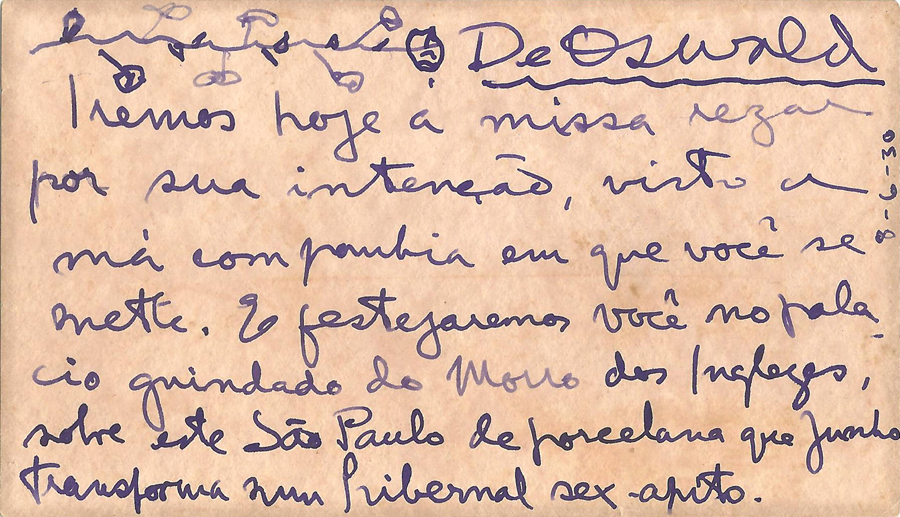 De Oswald
Iremos hoje á missa rezar
por sua intenção, visto a
má companhia em que você se
mette. E festejaremos você no pala
cio guindado do Morro dos Inglezes,
sobre este São Paulo de porcelana que Junho
transforma num hibernal sex-apito.
8-6-30